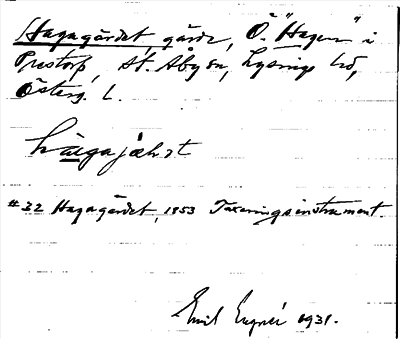 Hagagärdet, gärde, Ö. "Hagen" i
Prestorp, St. Åby sn, Lysings hd,
Österg. L.
hagajæhrt
#32 Hagagärdet, 1853 Taxeringsinstrument.
Emil Engné 1931.